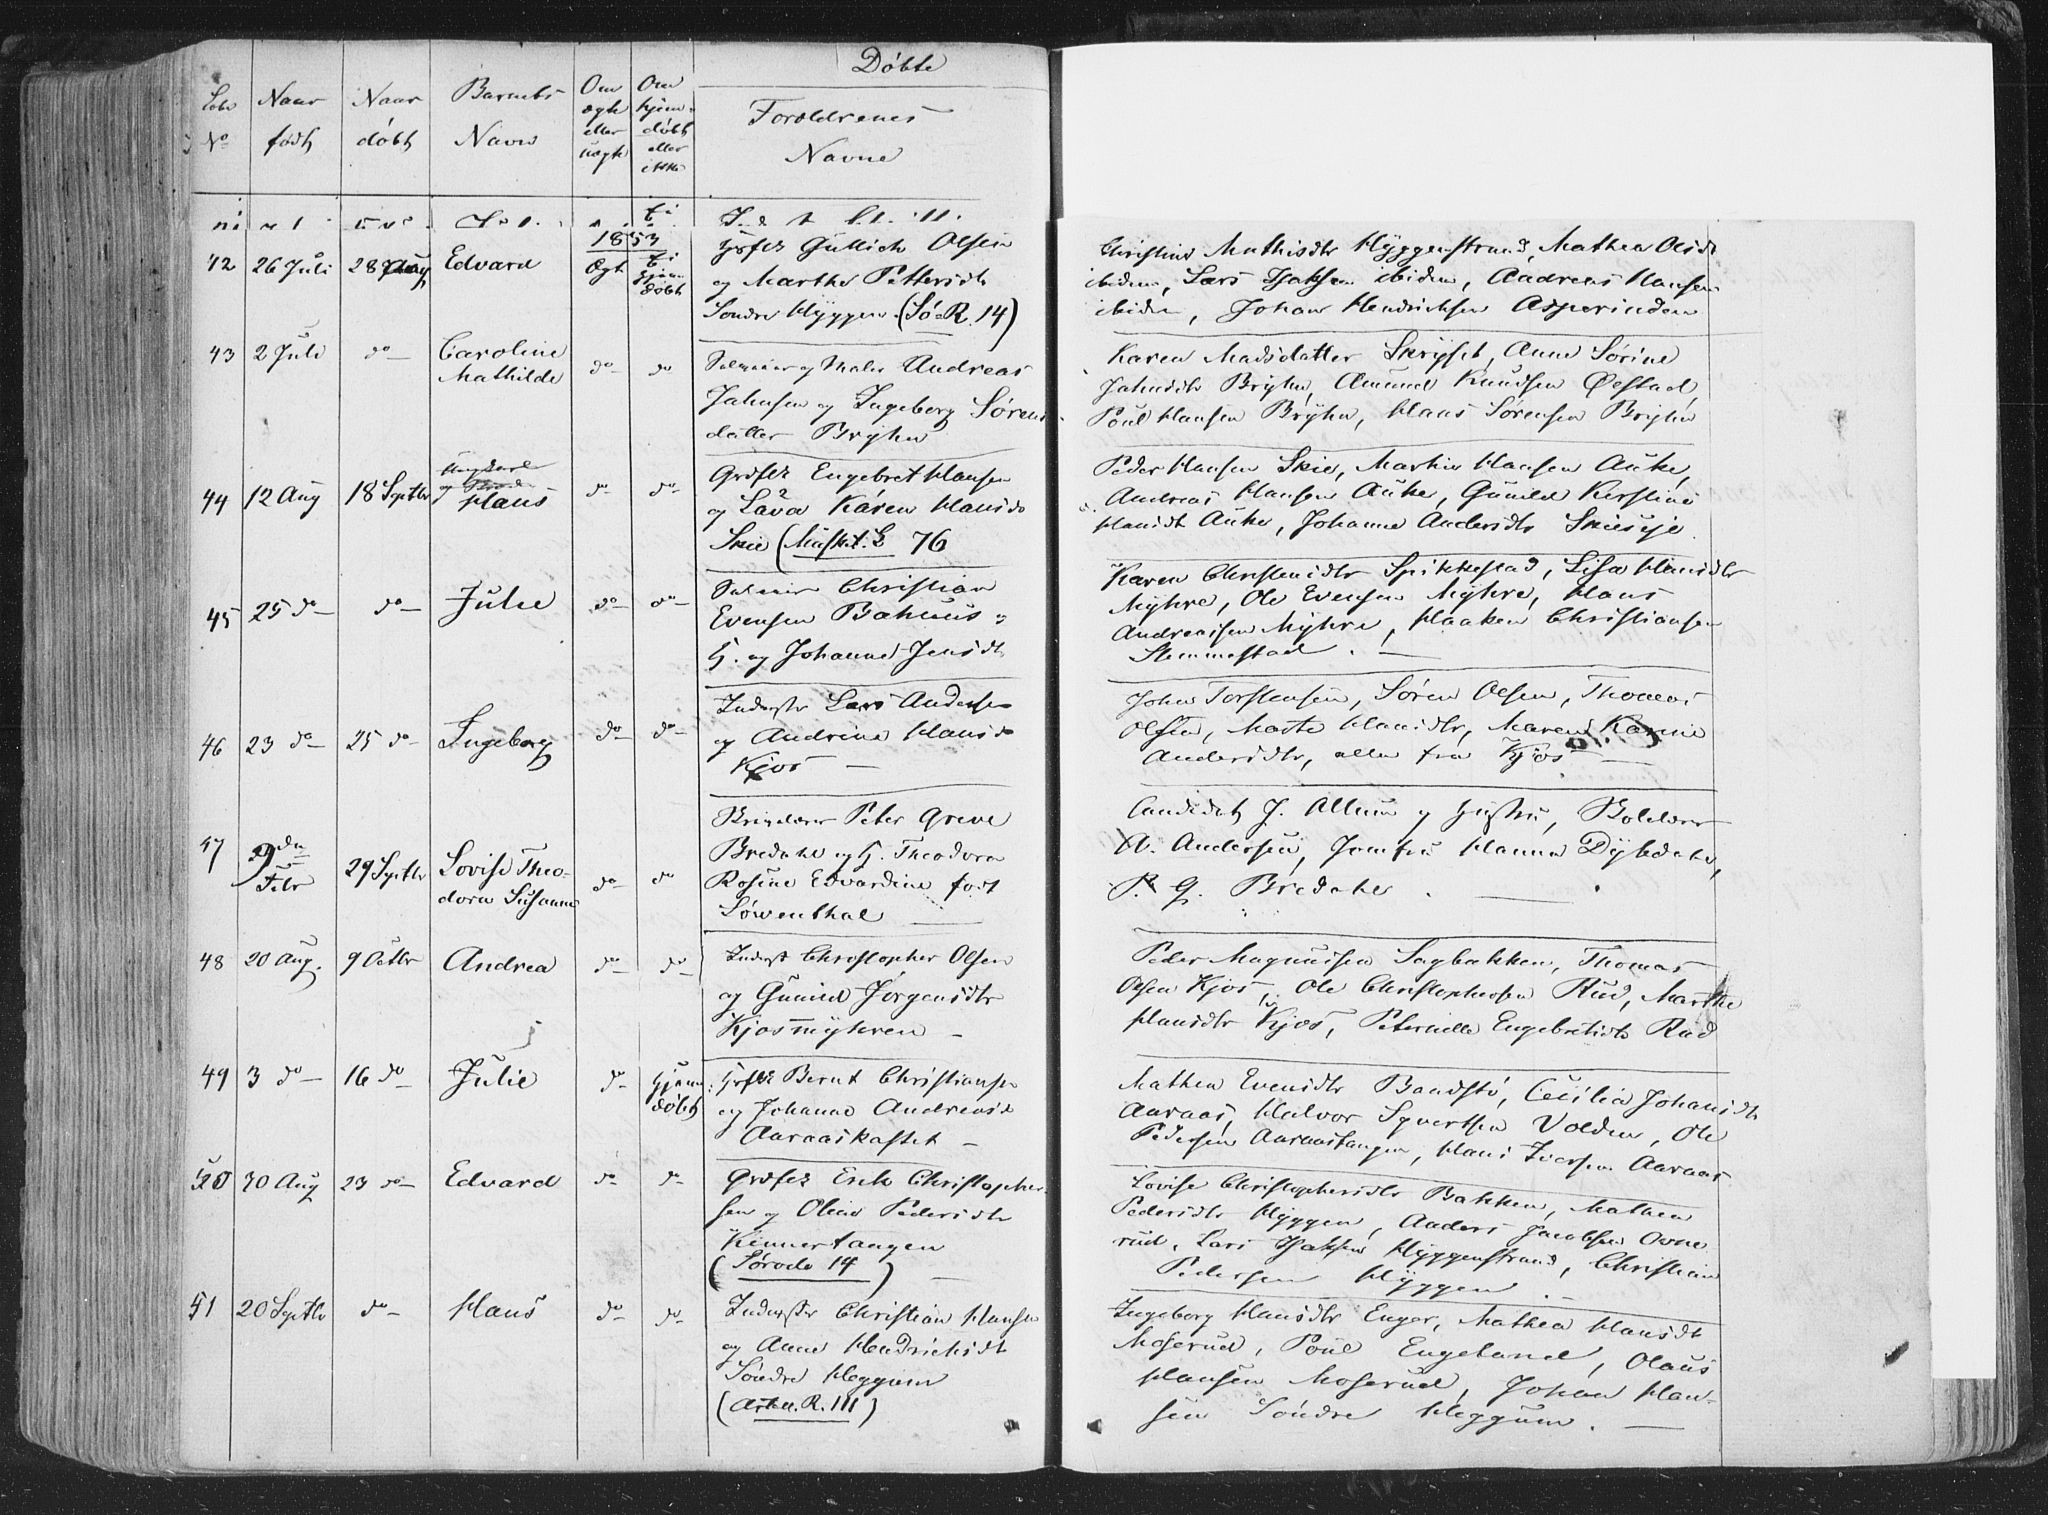 Døbte
Løbe No
Naar født
Naar døbt
Barnets Navn
Om ægte eller uægte
Om hjemmedøbt eller ikke
Forældrenes Navne
1853
42 26 Juli 28 Aug Edvard Ægt hjemdøbt
Gullich Olsen
og Marthe Pettersdt
Søndre Hyggen (Sø-R. 14)
Christine Mathisdtr Hyggenstrand, Mathea Olsdt
ibidem, Lars Isaksen ibidem, Andreas Hansen
ibidem, Johan Hendrichsen Asperinden
43 2 Juli do Caroline Mathilde do do
og Maler Andreas
Jahnsen og Ingeborg Sørens
datter Bryhn
Karen Madsdatter Skryset, Anne Sørine
Jahnsdtr Bryhn, Amund Knudsen Øestad,
Poul Hansen Bryhn, Hans Sørensen Bryhn
44 12 Aug 18 Septbr Hans do do
Engebret Hansen
og Lava Karen Hansdt
Skie (Musk. t. L 76
Peder Hansen Skie, Martin Hansen Auke,
Andreas Hansen Auke, Gunild Kirstine
Hansdt Auke, Johanne Andersdtr Skieseje.
45 25 do do Julie do do
Christian
Evensen Bahuus
H. og Johanne Jensdtr
Karen Christensdtr Spikkestad, Lisa Hansdtr
Myhre, Ole Evensen Myhre, Hans
Andreassen Myhre, Haaken Christiansen
Slemmestad.
46 23 do 25 do Ingeborg do do
Inderster Lars Andersen
og Andrine Hansdt
Kjos
John Torstensen, Søren Olsen, Thomas
Olsen, Marte Hansdtr, Maren Karine
Andersdtr, alle fra Kjos
47 9de Febr 29 Septbr Lovise Theodora Susanne do do
Peter Greve
Bredahl og H. Theodora
Rosine Edvardine født
Løwenthal
Candidat J. Allum og Hustru,
A. Andersen, Jomfru Hanna Dybdahl,
P. G. Bredahl.
48 20 Aug. 9 Octbr Andrea do do
Inderst Christopher Olsen
og Gunild Jørgensdtr
Kjosmyhren
Peder Magnussen Sagbakken, Thomas
Olsen Kjos, Ole Christophersen Rud, Marthe
Hansdtr Kjos, Peternelle Engebretsdtr Rud
49 3 do 16 do Julie do Hjemmedøbt
Bernt Christiansen
og Johanne Andreasdt
Aaraaskastet
Mathea Evensdtr Baadstø, Cecilia Johansdtr
Aaraas, Halvor Syvertsen Volden, Ole
Pedersen Aaraastangen, Hans Iversen Aaraas
50 30 Aug 23 do Edvard do do
Erik Christopher-
sen og Oline Pedersdtr
Kinnertangen
(Sørode 14)
Lovise Christophersdtr Bakken, Mathea
Pedersdtr Hyggen, Anders Jacobsen Ovne
rud, Lars Isaksen Hyggenstrand, Christian
Pedersen Hyggen.
51 20 Septbr do Hans do do
Inderster Christian Hansen
og Anne Hendrichsdt
Søndre Heggum
(Arbu. R. 111)
Ingeborg Hansdtr Enger, Mathea Hansdt
Moserud, Poul Engeland, Olaus
Hansen Moserud, Johan Han-
sen Søndre Heggum.